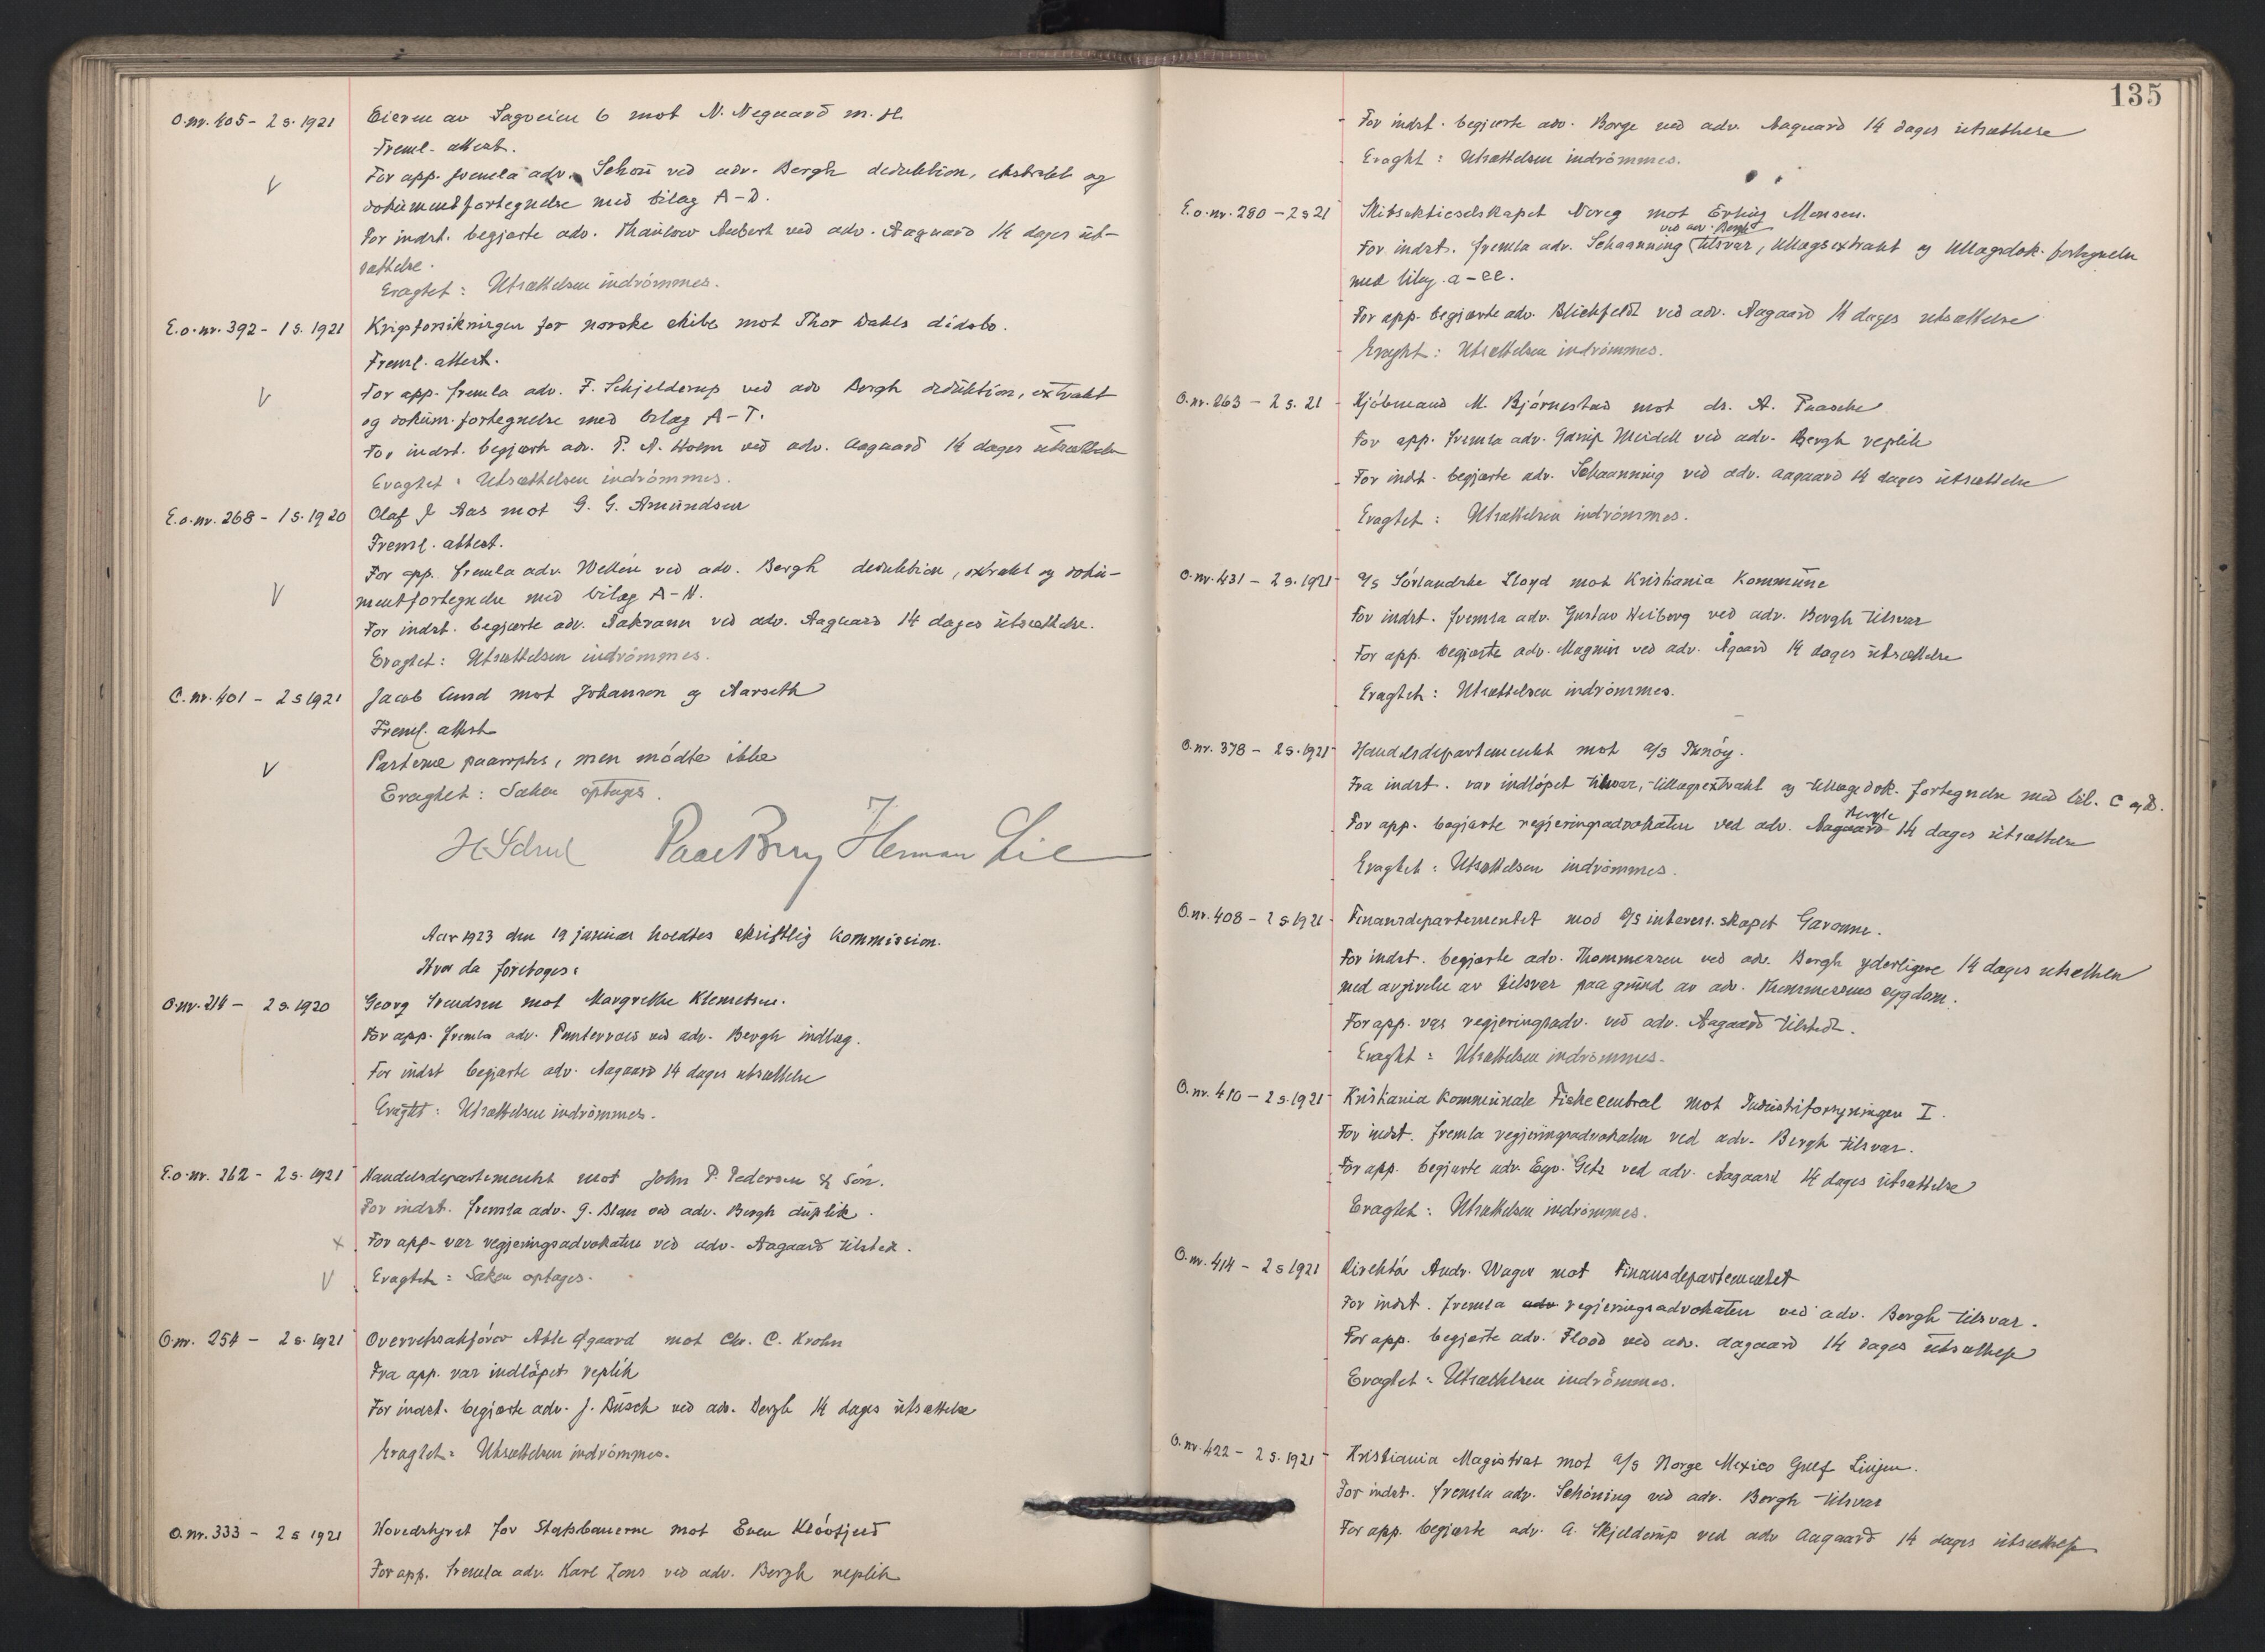 O.nr. 405 - 2 s. 1921 Eieren av Sagveien 6 mot N. Negaard m. fl.
Freml. attest.
V For app. fremla adv. Schou ved adv. Bergh deduktion, ekstrakt og
dokumentfortegnelse med bilag A-D.
For indst. begjærte adv. Thaulow Aubert ved adv. Aagaard 14 dages ut-
sættelse.
Eragtet: Utsættelsen indrömmes.
E.o.nr. 392 - 1 s. 1921 Krigsforsikringen for norske skibe mot Thor Dahls dödsbo.
Freml. attest.
V For app. fremla adv. F. Schjelderup ved adv Bergh deduktion, extrakt
og dokum. fortegnelse med bilag A-T.
For indst. begjærte adv. P. A. Holm ved adv. Aagaard 14 dages utsættelse
Eragtet: Utsættelsen indrömmes.
E.o.nr. 268 - 1 s. 1920 Olaf J Aas mot G. G. Amundsen
Freml. attest.
For app. fremla adv. Wellén ved adv. Bergh deduktion, extrakt og doku-
V mentfortegnelse med bilag A-N.
For indst. begjærte adv. ved adv. Aagaard 14 dages utsættelse.
Eragtet: Utsættelsen indrömmes.
O.nr. 401 - 2 s 1921 Jacob mot Johansen og Aarseth
Freml. attest
V Parterne paaroptes, men mödte ikke
Eragtet: Saken optages.
Paal Berg Herman Lie
Aar 1923 den 19 januar holdtes skriftlig kommission.
Hvor da foretoges:
O.nr. 214 - 2 s. 1920 Georg Svendsen mot Margrethe Klemetsen.
For app. fremla adv. Puntervold ved adv. Bergh indlæg.
For indst begjærte adv. Aagaard 14 dages utsættelse
Eragtet: Utsættelsen indrömmes.
E.o.nr. 262 - 2 s. 1921 Handelsdepartementet mot John P. Pedersen & Sön.
For indst. fremla adv. G. ved adv. Bergh duplik.
x For app. var regjeringsadvokaten ved adv. Aagaard tilstede.
V Eragtet: Saken optages.
O.nr. 254 - 2 s. 1921 Overretssakförer Atle Ögaard mot Chr. C. Krohn
Fra app. var indlöpet replik
For indst. begjærte adv. J. Busch ved adv. Bergh 14 dages utsættelse
Eragtet: Utsættelsen indrömmes.
O.nr. 333 - 2 s 1921 Hovedstyret for Statsbanerne mot Even Klöofjeld
For app. fremla adv. Karl Lous ved adv. Bergh replik
135
For indst. begjærte adv. Borge ved adv. Aagaard 14 dages utsættelse
Eragtet: Utsættelsen indrömmes.
E.o.nr. 280 - 2 s 21 Skibsaktieselskapet Noreg mot Erling Monsen.
ved adv. Bergh
For indst. fremla adv. Schaanning tilsvar, tillægsextrakt og tillægsdok. fortegnelse
med bilag. a-ee.
For app. begjærte adv. Blichfeldt ved adv. Aagaard 14 dages utsættelse
Eragtet: Utsættelsen indrömmes.
O.nr. 263 - 2 s. 21 Kjöbmand M. Björnestad mot dr. A. Paasche
For app. fremla adv. Harrip Meidell ved adv. Bergh replik
For indst. begjærte adv. Schaanning ved adv. Aagaard 14 dages utsættelse
Eragtet: Utsættelsen indrömmes.
O.nr. 431 - 2 s. 1921 A/S Sörlandske Lloyd mot Kristiania Kommune
For indst. fremla adv. Gustav Heiberg ved adv. Bergh tilsvar
For app. begjærte adv. Magnin ved adv. Ågaard 14 dages utsættelse
Eragtet: Utsættelsen indrömmes.
O.nr. 378 - 2 s. 1921 Handelsdepartementet mot A/S
Fra indst. var indlöpet tilsvar, tillægsextrakt og tillægsdok. fortegnelse med bil. C og D.
Bergh
For app. begjærte regjeringsadvokaten ved adv. Aagaard 14 dages utsættelse
Eragtet: Utsættelsen indrömmes.
O.nr. 408 - 2 s 1921 Finansdepartementet mod A/S interess. skapet Garonne.
For indst. begjærte adv. Thommessen ved adv. Bergh yderligere 14 dages utsættelse
med avgivelse av tilsvar paa grund av adv. Thommessens sygdom.
For app. var regjeringsadv. ved adv. Aagaard tilstede.
Eragtet: Utsættelsen indrömmes.
O.nr. 410 - 2 s. 1921 Kristiania kommunale Fiskecentral mot Industriforsyningen I.
For indst. fremla regjeringsadvokaten ved adv. Bergh tilsvar.
For app. begjærte adv. Eyv. Getz ved adv. Aagaard 14 dages utsættelse
Eragtet: Utsættelsen indrömmes.
O.nr. 414 - 2 s 1921 Direktör Andr. Wager mot Finansdepartementet
For indst. fremla adv regjeringsadvokaten ved adv. Bergh tilsvar.
For app. begjærte adv. Flood ved adv. Aagaard 14 dages utsættelse
Eragtet: Utsættelsen indrömmes.
O.nr. 422 - 2 s. 1921 Kristiania Magistrat mot A/S Norge Mexico Gulf Linjen.
For indst. fremla adv. Schöning ved adv. Bergh tilsvar
For app. begjærte adv. A. Skjelderup ved adv Aagaard 14 dages utsættelse